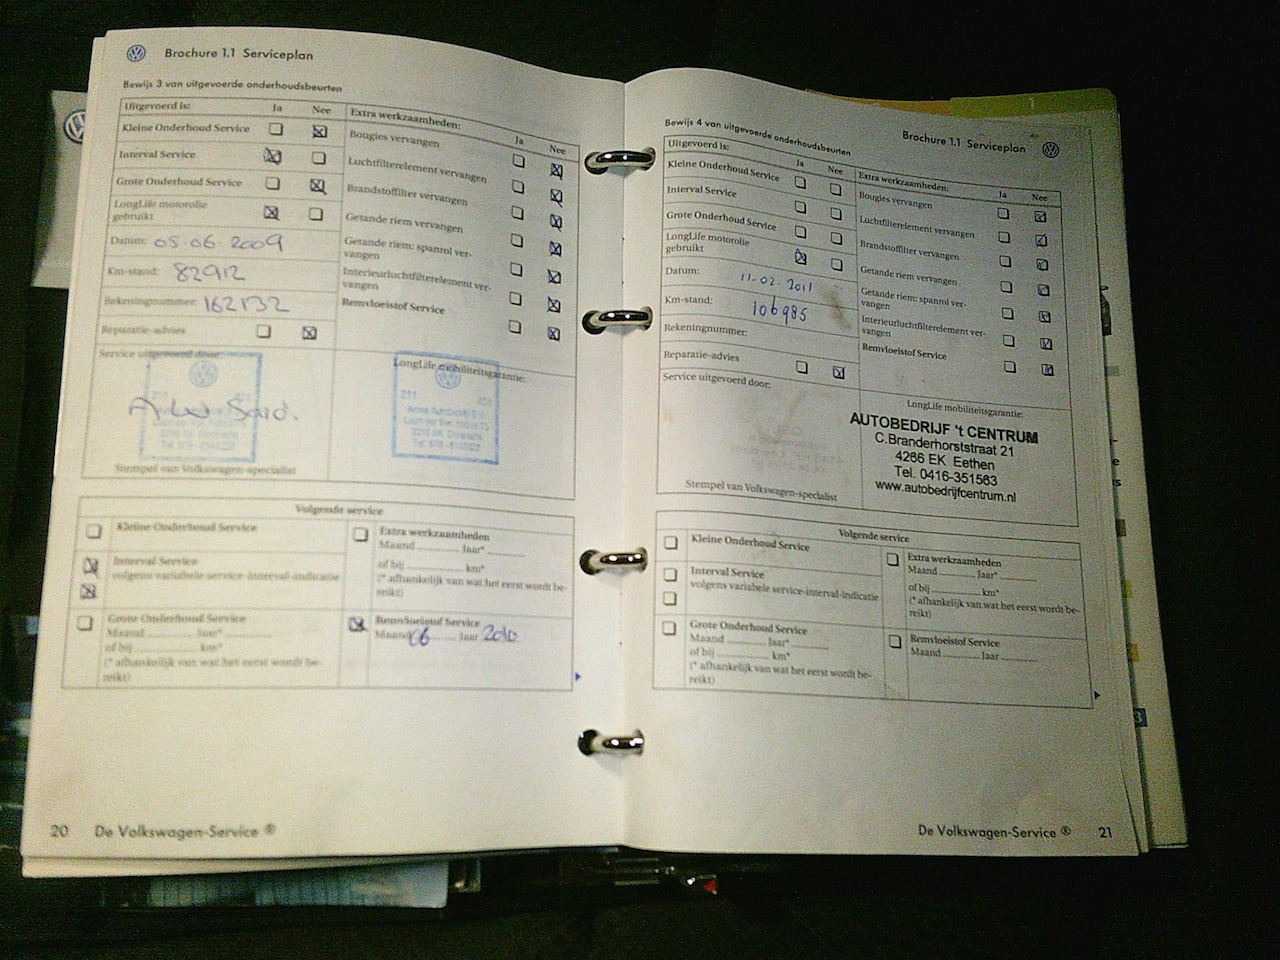 Brochure 1.1 Serviceplan
Bewijs 3 van uitgevoerde onderhoudsbeurten
Uitgevoerd is: Ja Nee
Kleine Onderhoud Service
Interval Service
Grote Onderhoud Service
LongLife motorolie
gebruikt
Datum: 05-06-2009
Km-stand: 82912
Rekeningnummer: 162132
Reparatie-advies
Extra werkzaamheden: Ja Nee
Bougies vervangen
Luchtfilterelement vervangen
Brandstoffilter vervangen
Getande riem vervangen
Getande riem: spanrol ver-
vangen
Interieurluchtfilterelement ver-
vangen
Remvloeistof Service
Service uitgevoerd door:
Stempel van Volkswagen-specialist
LongLife mobiliteitsgarantie:
Volgende service
Kleine Onderhoud Service
Interval Service
volgens variabele service-interval-indicatie
Grote Onderhoud Service
Maand ............ Jaar* ............
of bij ............ km*
(* afhankelijk van wat het eerst wordt be-
reikt)
Extra werkzaamheden
Maand ............ Jaar* ............
of bij ............ km*
(* afhankelijk van wat het eerst wordt be-
reikt)
Remvloeistof Service
Maand 06 Jaar 2010
20 De Volkswagen-Service ®
Brochure 1.1 Serviceplan
Bewijs 4 van uitgevoerde onderhoudsbeurten
Uitgevoerd is: Ja Nee
Kleine Onderhoud Service
Interval Service
Grote Onderhoud Service
LongLife motorolie
gebruikt
Datum: 11-02-2011
Km-stand: 106985
Rekeningnummer:
Reparatie-advies
Extra werkzaamheden: Ja Nee
Bougies vervangen
Luchtfilterelement vervangen
Brandstoffilter vervangen
Getande riem vervangen
Getande riem: spanrol ver-
vangen
Interieurluchtfilterelement ver-
vangen
Remvloeistof Service
Service uitgevoerd door:
Stempel van Volkswagen-specialist
LongLife mobiliteitsgarantie:
AUTOBEDRIJF 't CENTRUM
C.Branderhorststraat 21
4266 EK Eethen
Tel. 0416-351563
www.autobedrijfcentrum.nl
Volgende service
Kleine Onderhoud Service
Interval Service
volgens variabele service-interval-indicatie
Grote Onderhoud Service
Maand ............ Jaar* ............
of bij ............ km*
(* afhankelijk van wat het eerst wordt be-
reikt)
Extra werkzaamheden
Maand ............ Jaar* ............
of bij ............ km*
(* afhankelijk van wat het eerst wordt be-
reikt)
Remvloeistof Service
Maand ............ Jaar ............
De Volkswagen-Service ® 21